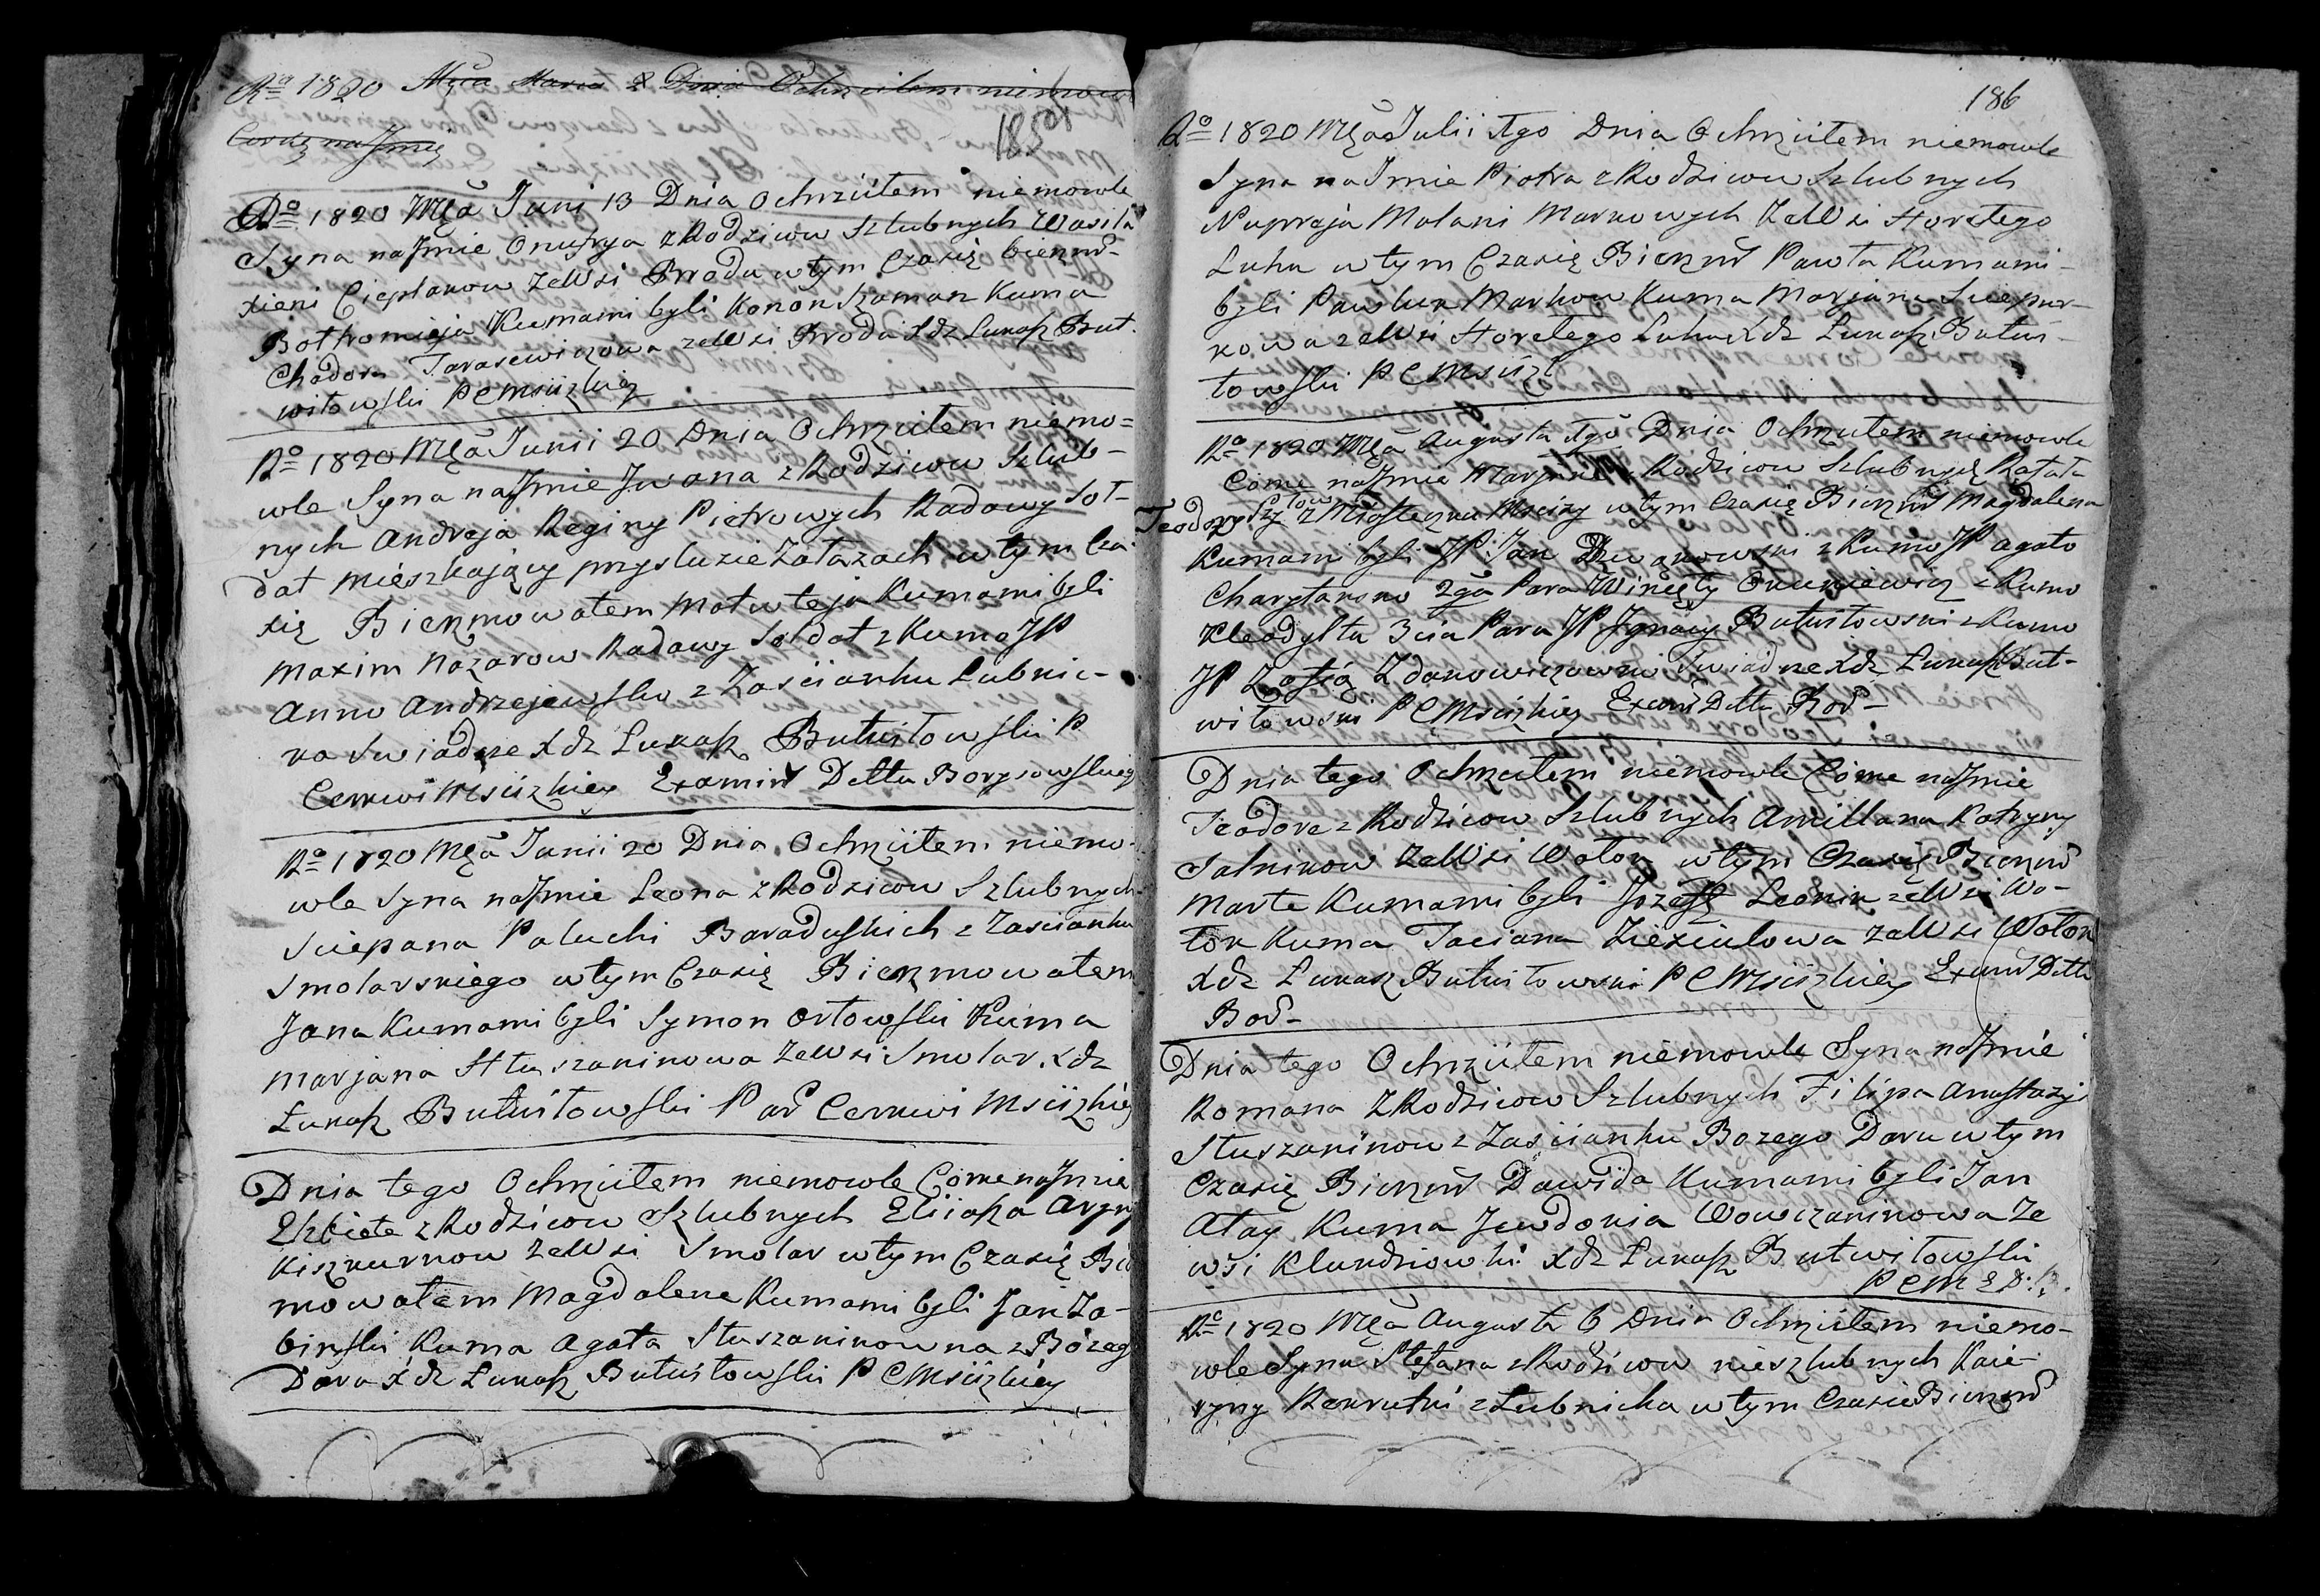 Ro 1820 Mca Marca 2 Dnia Ochrzciłem niemow
Corkę na Jmię
185
Ro 1820 Mca Juni 13 Dnia Ochrzciłem niemowle
Syna na Jmie Onufrya z Rodzicow Szlubnych Wasila
Xieni Cieplakow ze Wsi Brodu w tym Czasię bierzm-
Bołtromieja Kumami byli Konon Szaman Kuma
Chadora Tarasewiczowa ze Wsi Brodu Xdz Łukasz But
witowski P C Msciizkiey
Ro 1820 Mca Junii 20 Dnia Ochrzciłem niemo=
wle Syna na Jmie Jwana z Rodzicow Szlub-
nych Andreja Reginy Pietrowych Radowy Soł-
dat mieszkaiący przy słuzie Łatazach w tym Cza
się Bierzmowałem Matwieja Kumami byli
Maxim Nazarow Radowy Soldat z Kumo JP
Anno Andrzejewsko z Zaścianku Łubnic-
ka Swiadcze Xdz Łukasz Butwiłowski P
Cerkwi Msciizkiey Examin Dettu Borysowskiego
Ro 1820 Mca Junii 20 Dnia Ochrzciłem niemo-
wle Syna na Jmie Leona z Rodzicow Szlubnych
Sciepana Paluchi Baraduskich z Zascianku
Smolarskiego w tym Czasię Bierzmowałem
Jana Kumami byli Symon Orłowski Kuma
Marjana Słuszaninowa ze Wsi Smolar Xdz
Łukasz Butwiłowski Par Cerkwi Msciizkiey
Dnia tego Ochrzciłem niemowle Corke na Jmie
Elzbiete z Rodzicow Szlubnych Eliiasza Aryny
Kiszkurnow ze Wsi Smolar w tym Czasię Bie
mowałem Magdalene Kumami byli Jan Za-
binski Kuma Agata Słuszaninowna z Bozego
Dara Xdz Łukasz Butwiłowski P C Msciizkiey
186
Ro 1820 Mca Julii 1go Dnia Ochrzciłem niemowle
Syna na Jmie Piotra z Rodzicow Szlubnych
Nupreja Malani Markowych ze Wsi Horełego
Luhu w tym Czasię Bierzm Pawła Kumami-
byli Pawluk Markow Kuma Marjana Sciepur-
kowa ze Wsi Horełego Luhu Xdz Łukasz Butwi-
łowski P C Msciizk
Ro 1820 Mca Augusta 1go Dnia Ochrzciłem niemowle
Corne na Jmie Marjane z Rodzicow Szlubnych Rafała
Teodory z Miasteczka Mscizy w tym Czasię Bierzm Magdalena
Kumami byli JP Jan z Kumo JP Agato
Charytansko 2ga Para Wincęty z Kumo
3cia Para JP Jgnacy Butwiłowski z Kumo
JP Zofią Zdanowiczowni Swiadcze Xdz Łukasz But-
wiłowski P C Msciizkiey Exam Dettu Bor-
Dnia tego Ochrzciłem niemowle Corne na Jmie
Teodore z Rodzicow Szlubnych Amillana Katryny
Salnikow ze Wsi Wołok w tym Czasię Bierzm
Marte Kumami byli Jozefz Leonik ze Wsi Wo-
łok Kuma Taciana ze Wsi Wołok
Xdz Łukasz Butwiłowski P C Msciizkiey Exam Dettu
Bor-
Dnia tego Ochrzciłem niemowle Syna na Jmie
Romana z Rodzicow Szlubnych Filipa Anastazyi
Słuszaninow z Zascianku Bozego Daru w tym
Czasię Bierzm Dawida Kumami byli Jan
Ałay Kuma Jewdokia Wowczaninowa Ze
wsi Xdz Łukasz Butwiłowski
P C M
Ro 1820 Mca Augusta 6 Dnia Ochrzciłem niemo-
wle Syna Stefana z Rodzicow nieszlubnych Kaie-
ryny Rekrutki z Łubnicka w tym Czasie Bierzm